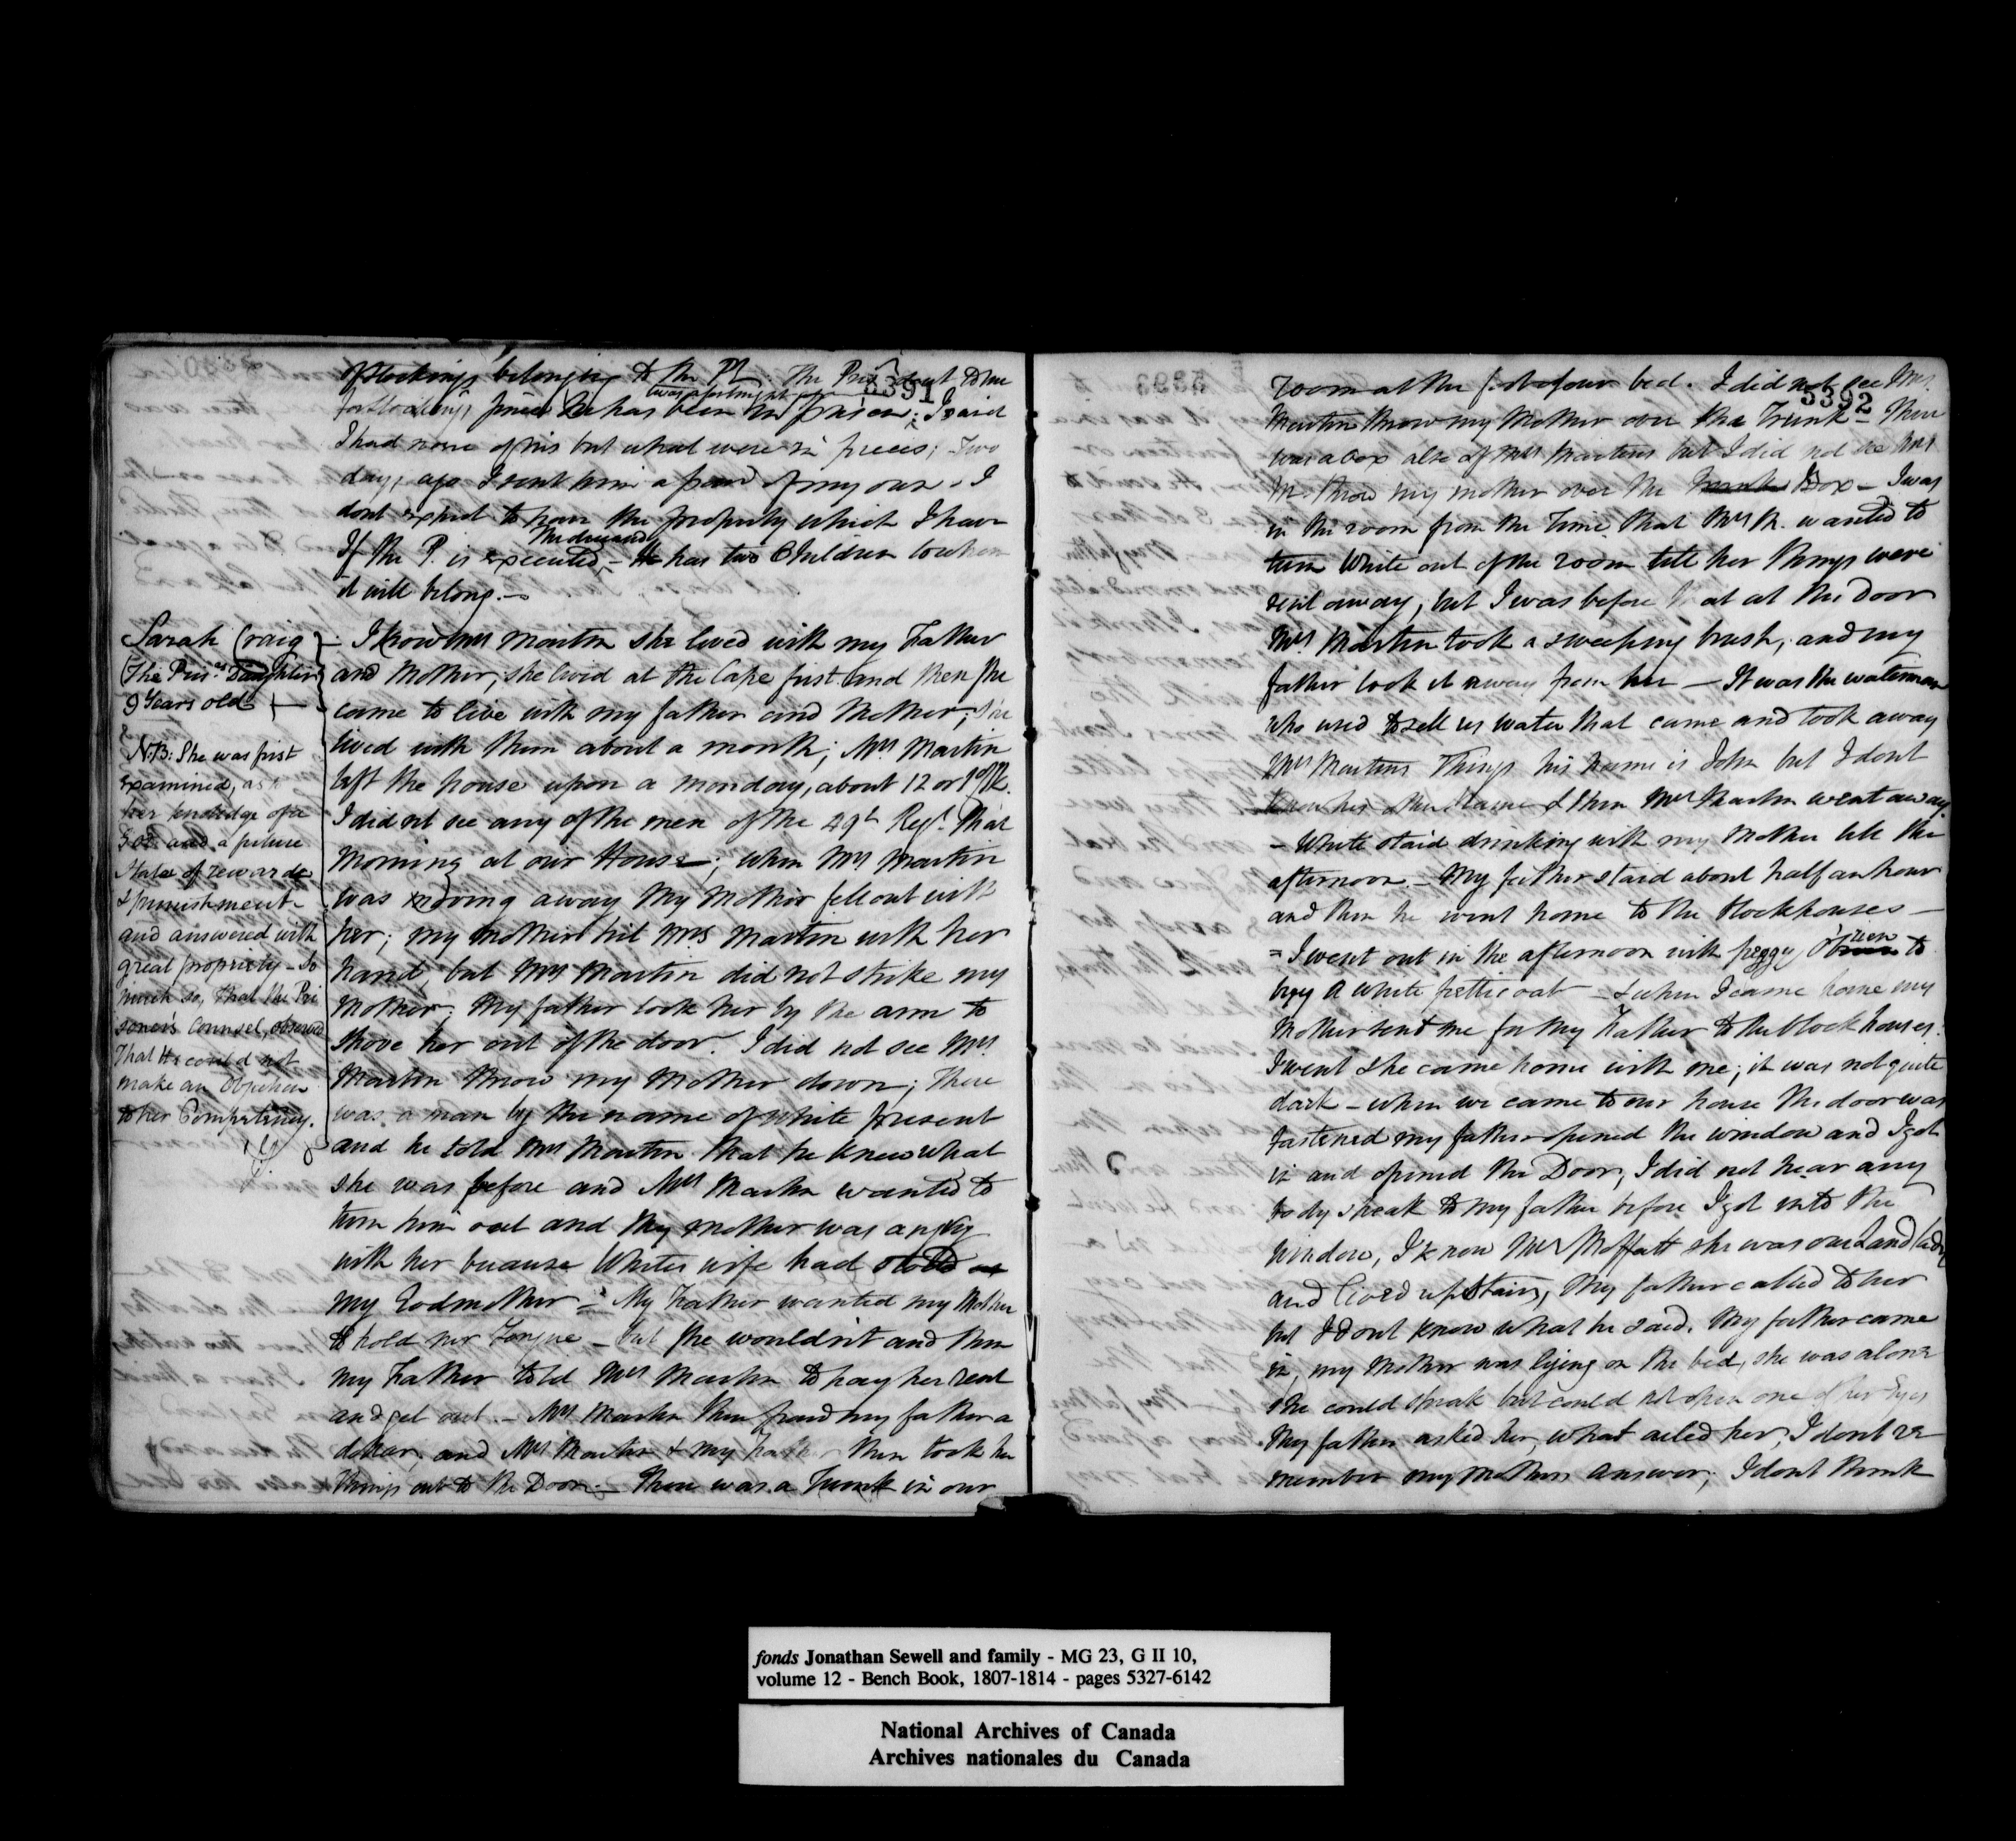 5391
of Stockings belonging to the Pr. The Pris. sent to me
for Stockings since he has been in prison; I said
was a fortnight ago
I had none of his but what were in pieces; Two
days ago I sent him a pair of my own. I
dont expect to have the property which I have
If the P. is executed, - He has two Children to whom
The deceased
it will belong. -
Sarah Craig
(The Pris.rs Daughter
9 Years old)
N.B: She was first
examined, as to
her knowledge of a
God and a future
State of rewards
& punishment -
and answered with
great propriety - So
much so, that the Pri
soner's Counsel, observed
That He could not
make an Objection
to her Competency.
- I know Mrs Martin she lived with my Father
and Mother, she lived at the Cape first and then she
came to live with my father and Mother; She
lived with them about a month; Mrs Martin
left the house upon a monday, about 12 or 1 o'Ck.
I did not see any of the men of the 49th Regt. that
Morning at our House; when Mrs Martin
was moving away My Mother fell out with
her; my mother hit Mrs Martin with her
hand, but Mrs Martin did not strike my
Mother; My father took her by the arm to
shove her out of the door. I did not see Mrs.
Martin throw my Mother down; There
was a man by the name of White present
and he told Mrs Martin that he knew what
she was before and Mrs Martin wanted to
turn him out and My mother was angry
with her because Whites wife had stood
my Godmother - My Father wanted my Mother
to hold her Tongue - but she wouldnt and then
my Father told Mrs Martin to pay her rent
and get out. - Mrs Martin then paid my father a
dollar, and Mrs Martin & my Father then took her
things out to the Door. - there was a Trunk in our
5392
room at the foot of our bed. I did not see Mrs.
Martin throw my Mother over the Trunk - There
was a box also of Mrs Martins but I did not see Mrs
M. throw my mother over the Trunk Box - I was
in the room from the time that Mrs M. wanted to
turn White out of the room till her things were
sent away, but I was before that at the Door
Mrs Martin took a sweeping brush, and my
father took it away from her - It was the waterman
who used to sell us water that came and took away
Mrs Martins Things his name is John but I dont
know his other name & then Mrs Martin went away.
- White staid drinking with my Mother till the
afternoon. - My father staid about half an hour
and then he went home to the Blockhouses -
= I went out in the afternoon with peggy O'brien to
buy a white petticoat - & when I came home my
Mother sent me for my Father to the block houses.
I went & he came home with me; it was not quite
dark - when we came to our house the door was
fastened my father opened the window and I got
in and opened the Door, I did not hear any
body speak to my father before I got into the
window, I know Mrs Moffatt she was our Landlady
and lived up Stairs, My father called to her
but I dont know what he said. My father came
in, my Mother was lying on the bed, she was alone
she could speak but could not open one of her Eyes
My father asked her, what ailed her, I dont re
member my Mothers answer; I dont think
fonds Jonathan Sewell and family - MG 23, G II 10,
volume 12 - Bench Book, 1807-1814 - pages 5327-6142
National Archives of Canada
Archives nationales du Canada